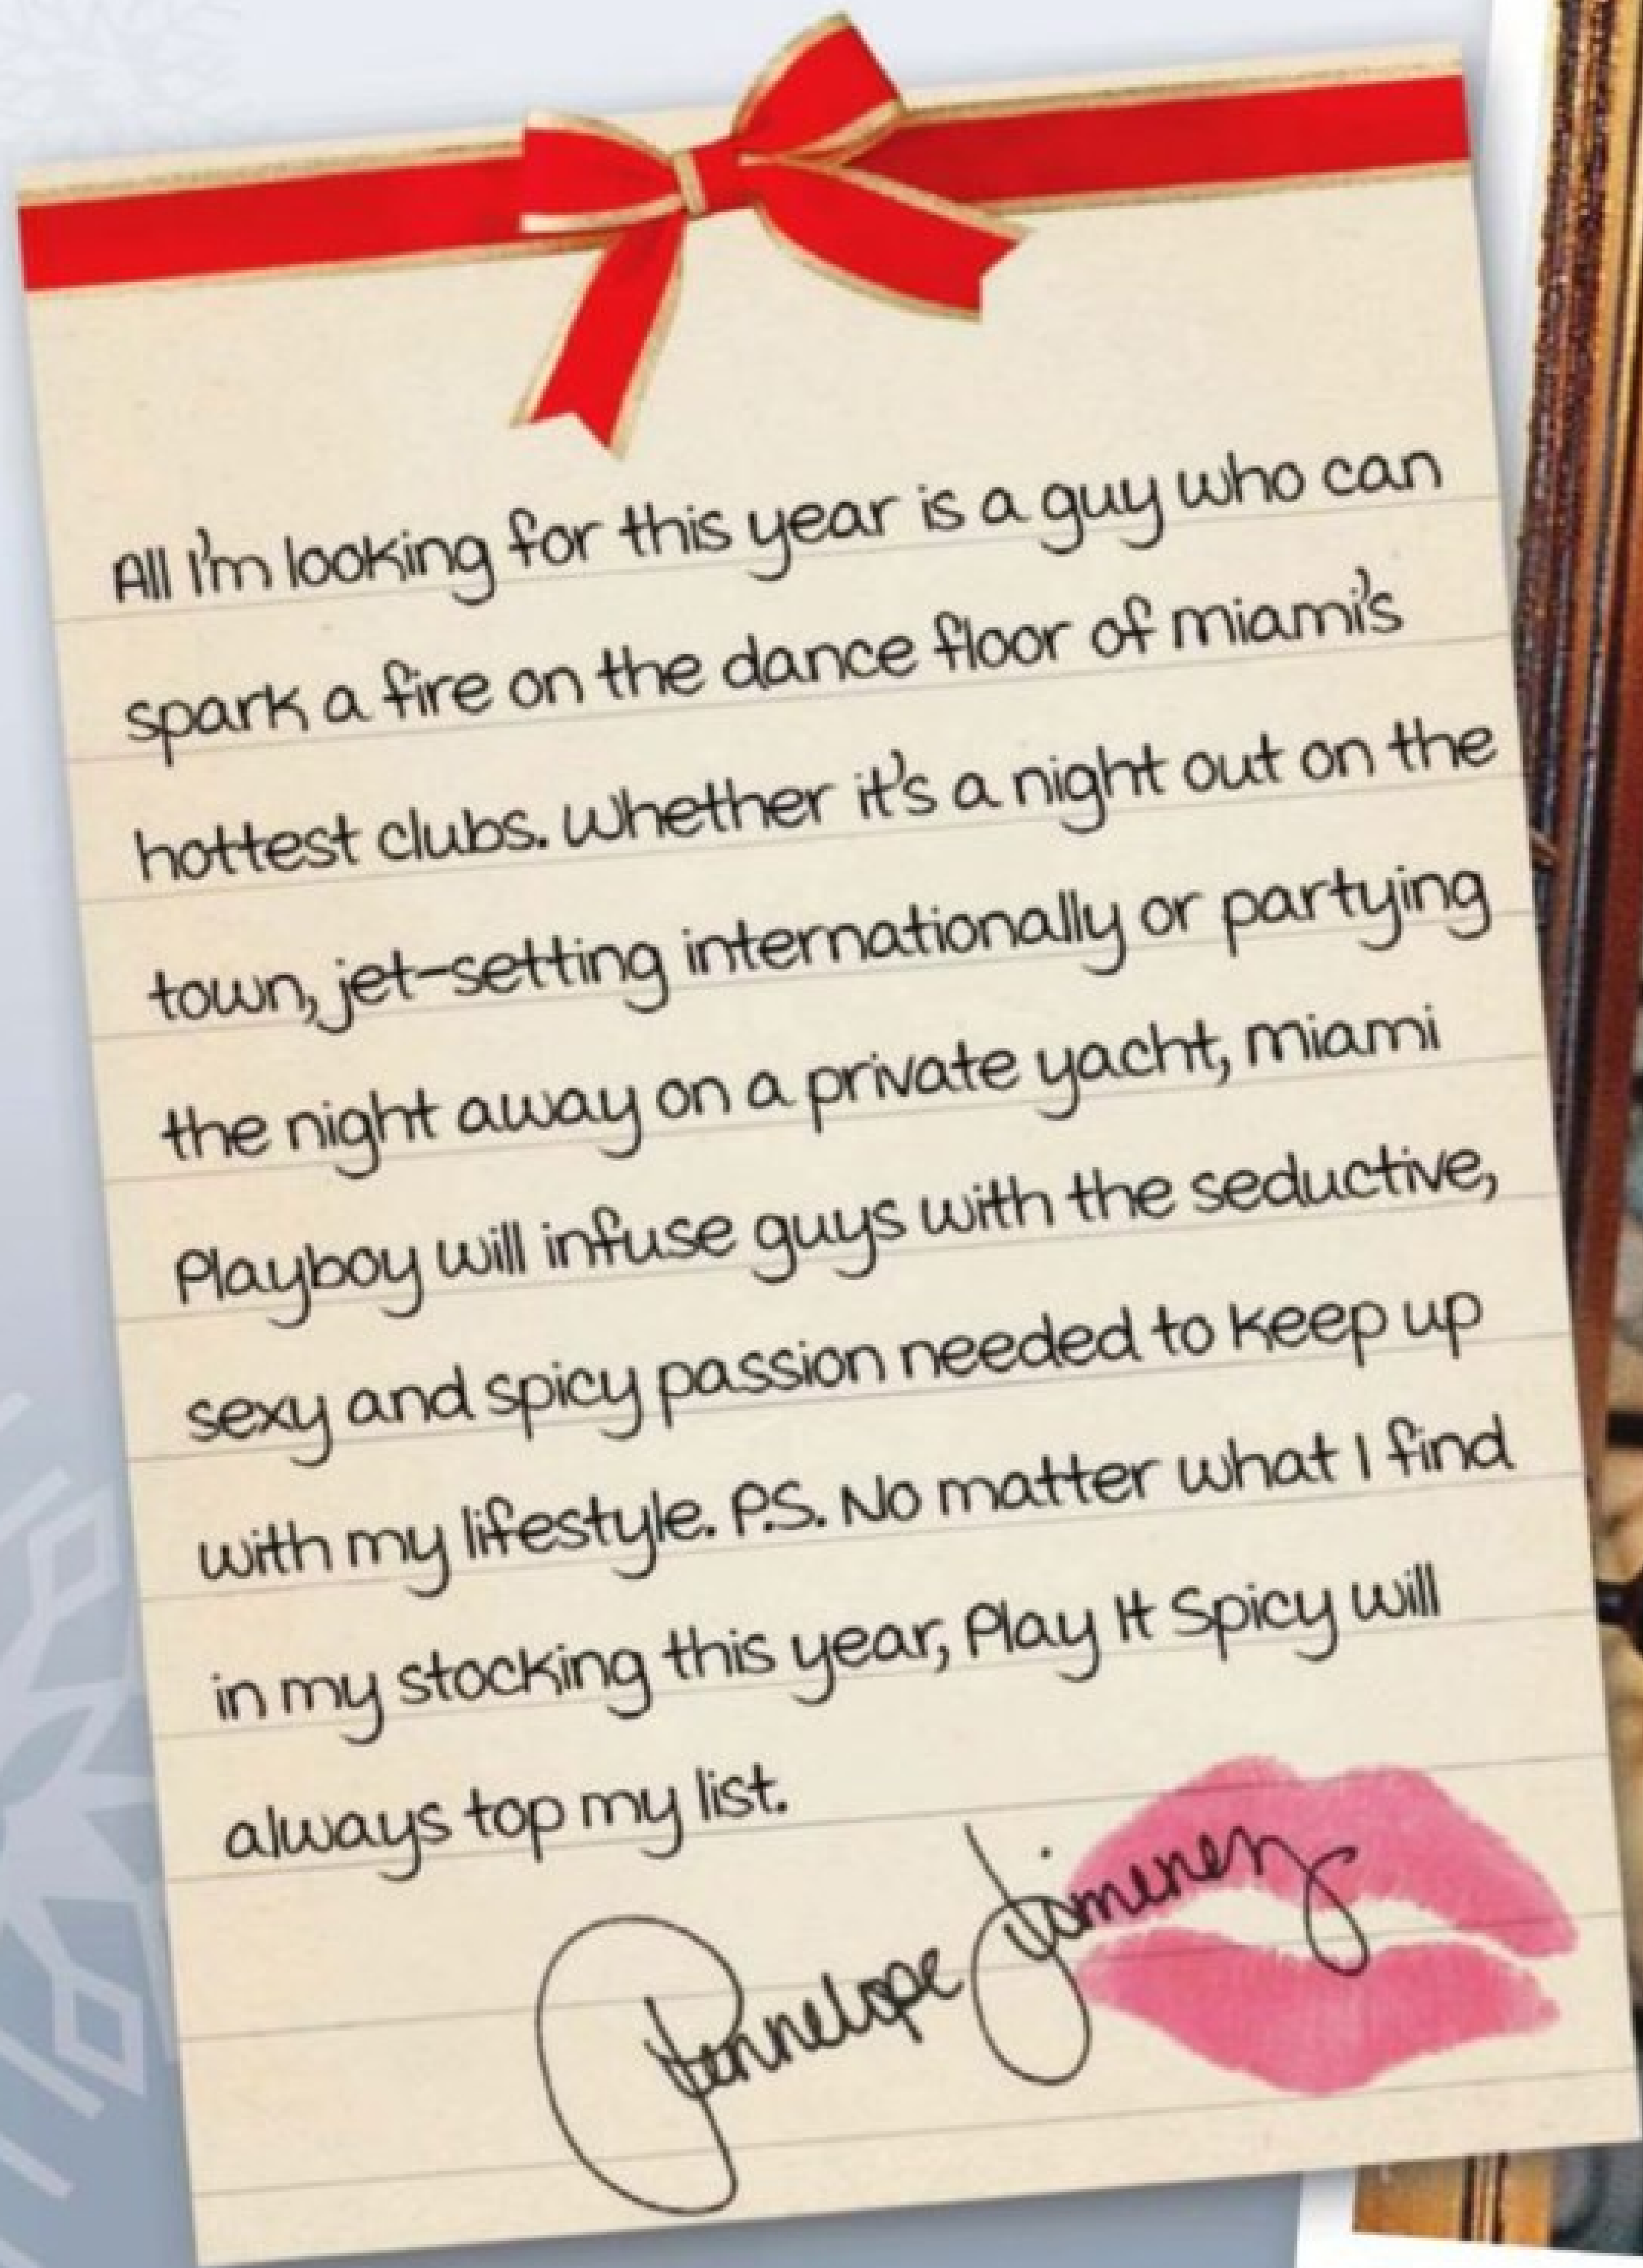 All I'm looking for this year is a guy who can
spark a fire on the dance floor of miami's
hottest clubs. Whether it's a night out on the
town, jet-setting internationally or partying
the night away on a private yacht, miami
Playboy will infuse guys with the seductive,
sexy and spicy passion needed to keep up
with my lifestyle. P.S. No matter what I find
in my stocking this year, Play It Spicy will
always top my list.
Pennelope Jimenez